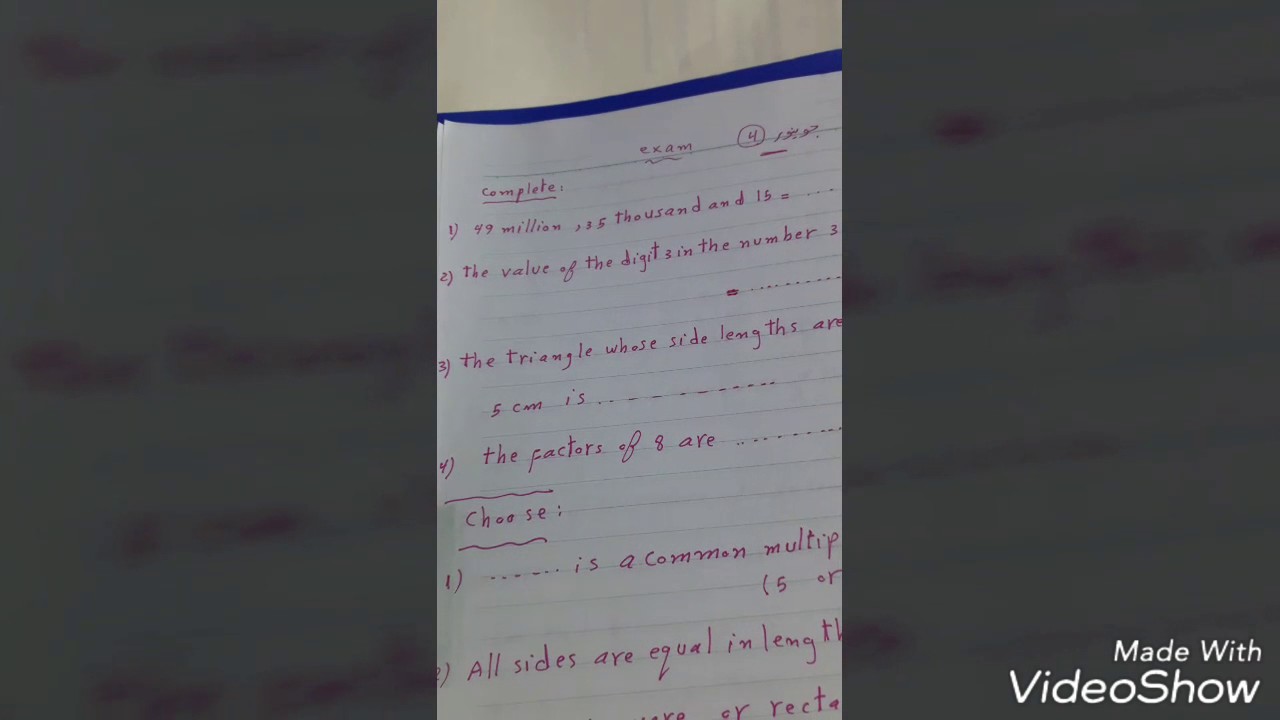 exam ④
Complete:
1) 49 million , 35 thousand and 15 = ....
2) the value of the digit 3 in the number 3
= .........
3) the triangle whose side lengths are
5 cm is ............
4) the factors of 8 are .........
Choose:
1) ...... is a common multip
(5 or
2) All sides are equal in length
or recta
Made With
VideoShow